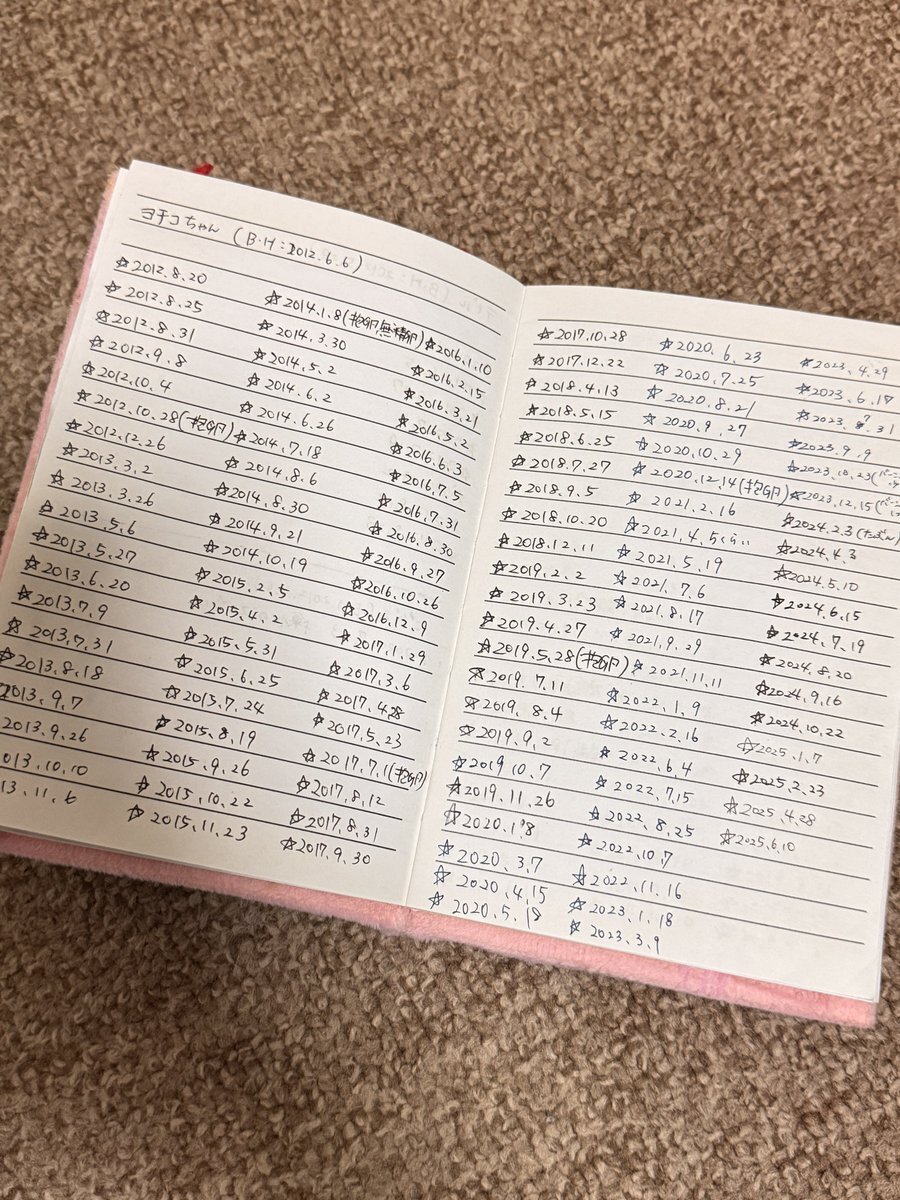 ヨチコちゃん (B・H:2012.6.6)
☆2012.8.20
☆2012.8.25
☆2012.8.31
☆2012.9.8
☆2012.10.4
☆2012.10.28(抱卵)
☆2012.12.26
☆2013.3.2
☆2013.3.26
☆2013.5.6
☆2013.5.27
☆2013.6.20
☆2013.7.9
☆2013.7.31
☆2013.8.18
2013.9.7
2013.9.26
013.10.10
13.11.6
☆2014.1.8(抱卵無精卵)
☆2014.3.30
☆2014.5.2
☆2014.6.2
☆2014.6.26
☆2014.7.18
☆2014.8.6
☆2014.8.30
☆2014.9.21
☆2014.10.19
☆2015.2.5
☆2015.4.2
☆2015.5.31
☆2015.6.25
☆2015.7.24
☆2015.8.19
☆2015.9.26
☆2015.10.22
☆2015.11.23
☆2016.1.10
☆2016.2.15
☆2016.3.21
☆2016.5.2
☆2016.6.3
☆2016.7.5
☆2016.7.31
☆2016.8.30
☆2016.9.27
☆2016.10.26
☆2016.12.9
☆2017.1.29
☆2017.3.6
☆2017.4.28
☆2017.5.23
☆2017.7.1(抱卵)
☆2017.8.12
☆2017.8.31
☆2017.9.30
☆2017.10.28
☆2017.12.22
☆2018.4.13
☆2018.5.15
☆2018.6.25
☆2018.7.27
☆2018.9.5
☆2018.10.20
☆2018.12.11
☆2019.2.2
☆2019.3.23
☆2019.4.27
☆2019.5.28(抱卵)
☆2019.7.11
☆2019.8.4
☆2019.9.2
☆2019.10.7
☆2019.11.26
☆2020.1.8
☆2020.3.7
☆2020.4.15
☆2020.5.18
☆2020.6.23
☆2020.7.25
☆2020.8.21
☆2020.9.27
☆2020.10.29
☆2020.12.14(抱卵)
☆2021.2.16
☆2021.4.5くらい
☆2021.5.19
☆2021.7.6
☆2021.8.17
☆2021.9.29
☆2021.11.11
☆2022.1.9
☆2022.2.16
☆2022.6.4
☆2022.7.15
☆2022.8.25
☆2022.10.7
☆2022.11.16
☆2023.1.18
☆2023.3.9
☆2023.4.29
☆2023.6.17
☆2023.8.31
☆2023.9.9
☆2023.10.23
☆2023.12.15
☆2024.2.3(たぶん)
☆2024.4.3
☆2024.5.10
☆2024.6.15
☆2024.7.19
☆2024.8.20
☆2024.9.16
☆2024.10.22
☆2025.1.7
☆2025.2.23
☆2025.4.28
☆2025.6.10